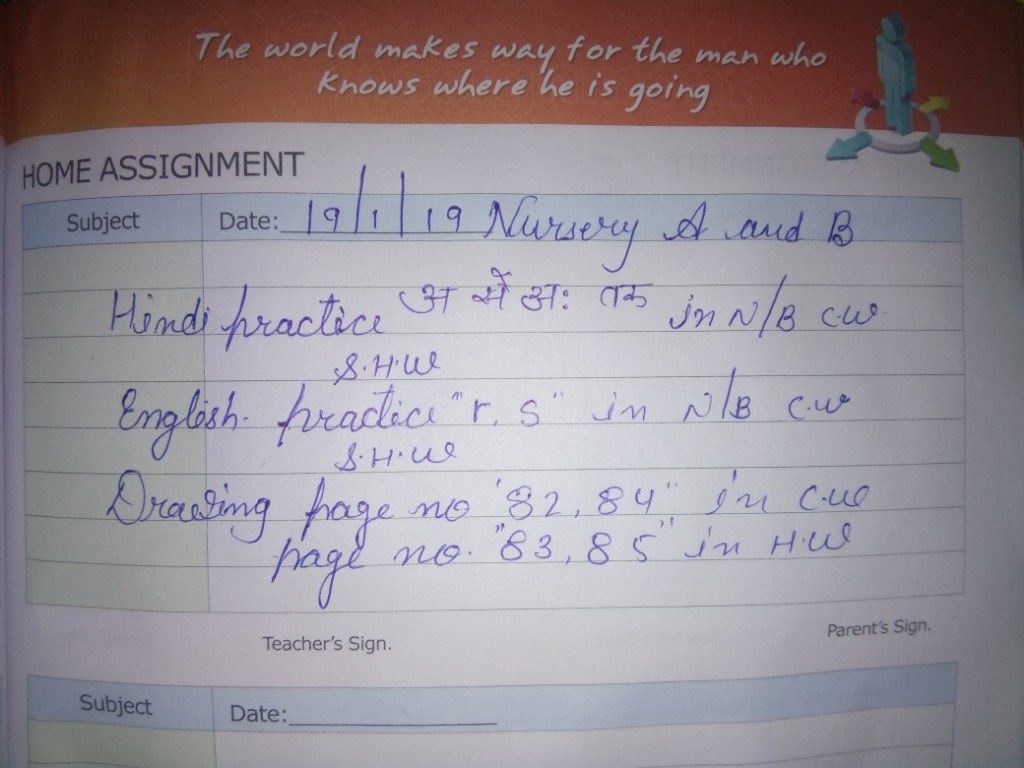 The world makes way for the man who
knows where he is going
HOME ASSIGNMENT
Subject Date: 19/1/19 Nursery A and B
Hindi practice अ से अः तक in N/B C.W.
S.H.W
English. practice "r, s" in N/B C.W
S.H.W
Drawing page no "82, 84" in C.W
page no. "83, 85" in H.W
Teacher's Sign. Parent's Sign.
Subject Date: